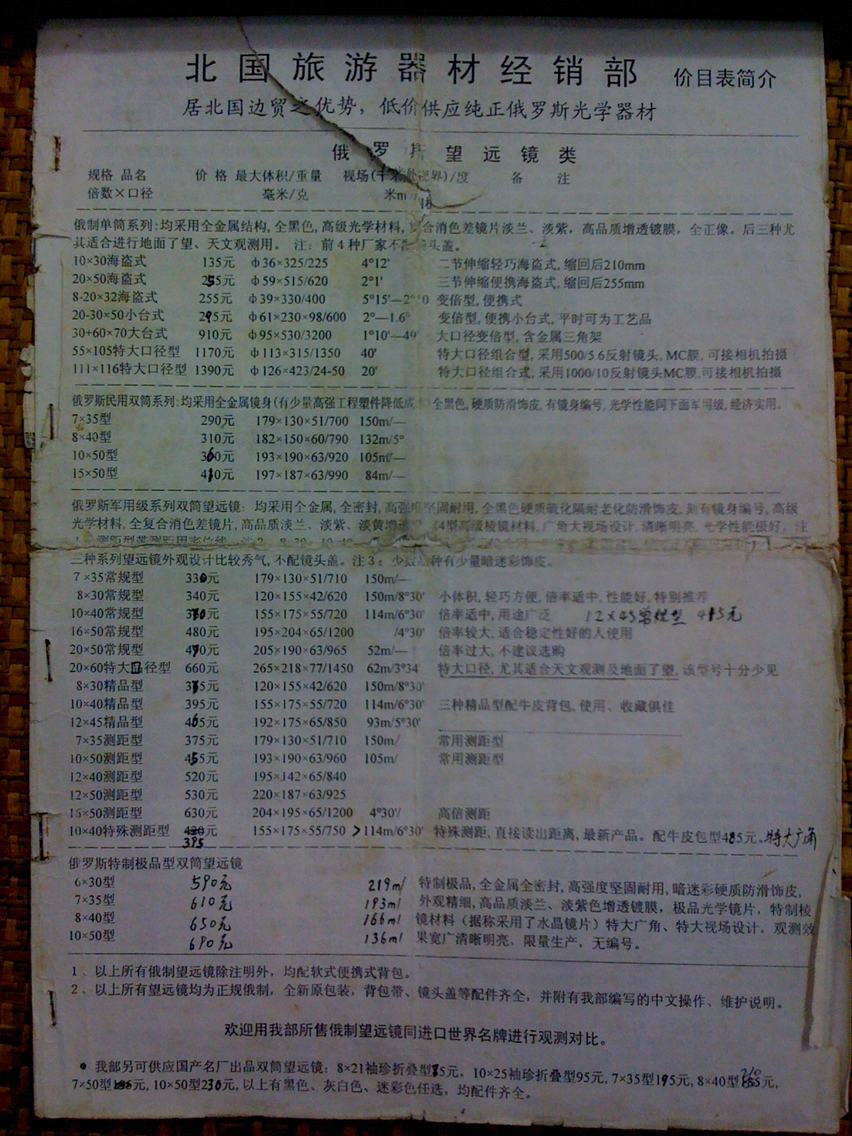 北国旅游器材经销部 价目表简介
居北国边贸之优势，低价供应纯正俄罗斯光学器材
俄罗斯望远镜类
规格 品名 价格 最大体积/重量 视场(千米处视界)/度 备 注
倍数×口径 毫米/克 米m/
俄制单筒系列：均采用全金属结构，全黑色，高级光学材料，复合消色差镜片淡兰、淡紫，高品质增透镀膜，全正像。后三种尤
其适合进行地面了望、天文观测用。 注：前4种厂家不配镜头盖。
10×30海盗式 135元 φ36×325/225 4°12′ 二节伸缩轻巧海盗式，缩回后210mm
20×50海盗式 2 5元 φ59×515/620 2°1′ 三节伸缩便携海盗式，缩回后255mm
8-20×32海盗式 255元 φ39×330/400 5°15′—2° 变倍型，便携式
20-30×50小台式 2 5元 φ61×230×98/600 2°—1.6° 变倍型，便携小台式，平时可为工艺品
30+60×70大台式 910元 φ95×530/3200 1°10′—49′ 大口径变倍型，含金属三角架
55×105特大口径型 1170元 φ113×315/1350 40′ 特大口径组合型，采用500/5.6反射镜头，MC膜，可接相机拍摄
111×116特大口径型 1390元 φ126×423/24-50 20′ 特大口径组合式，采用1000/10反射镜头MC膜，可接相机拍摄
俄罗斯民用双筒系列：均采用全金属镜身(有少量高强工程塑件降低成本)全黑色，硬质防滑饰皮，有镜身编号，光学性能同下面军用级，经济实用。
7×35型 290元 179×130×51/700 150m/—
8×40型 310元 182×150×60/790 132m/5°
10×50型 3 0元 193×190×63/920 105m/—
15×50型 4 0元 197×187×63/990 84m/—
俄罗斯军用级系列双筒望远镜：均采用全金属，全密封，高强度坚固耐用，全黑色硬质硫化隔耐老化防滑饰皮，刻有镜身编号，高级
光学材料，全复合消色差镜片，高品质淡兰、淡紫、淡黄增透 4型高级棱镜材料，广角大视场设计，清晰明亮，光学性能极好。注
三种系列望远镜外观设计比较秀气，不配镜头盖。注3：少数 种有少量暗迷彩饰皮。
7×35常规型 330元 179×130×51/710 150m/—
8×30常规型 340元 120×155×42/620 150m/8°30′ 小体积，轻巧方便，倍率适中，性能好，特别推荐
10×40常规型 3 0元 155×175×55/720 114m/6°30′ 倍率适中，用途广泛 12×45常规型 415元
16×50常规型 480元 195×204×65/1200 /4°30′ 倍率较大，适合稳定性好的人使用
20×50常规型 4 0元 205×190×63/965 52m/— 倍率过大，不建议选购
20×60特大口径型 660元 265×218×77/1450 62m/3°34′ 特大口径，尤其适合天文观测及地面了望，该型号十分少见
8×30精品型 3 5元 120×155×42/620 150m/8°30′
10×40精品型 395元 155×175×55/720 114m/6°30′ 三种精品型配牛皮背包，使用、收藏俱佳
12×45精品型 4 5元 192×175×65/850 93m/5°30′
7×35测距型 375元 179×130×51/710 150m/ 常用测距型
10×50测距型 455元 193×190×63/960 105m/ 常用测距型
12×40测距型 520元 195×142×65/840
12×50测距型 530元 220×187×63/925
16×50测距型 630元 204×195×65/1200 4°30′/ 高倍测距
10×40特殊测距型 420元 155×175×55/750 >114m/6°30′ 特殊测距，直接读出距离，最新产品。配牛皮包型4 5元。特大广角
395
俄罗斯特制极品型双筒望远镜
6×30型 590元 219m/ 特制极品，全金属全密封，高强度坚固耐用，暗迷彩硬质防滑饰皮，
7×35型 610元 193m/ 外观精细，高品质淡兰、淡紫色增透镀膜，极品光学镜片，特制棱
8×40型 650元 166m/ 镜材料（据称采用了水晶镜片）特大广角、特大视场设计，观测效
10×50型 690元 136m/ 果宽广清晰明亮，限量生产，无编号。
1、以上所有俄制望远镜除注明外，均配软式便携式背包。
2、以上所有望远镜均为正规俄制，全新原包装，背包带、镜头盖等配件齐全，并附有我部编写的中文操作、维护说明。
欢迎用我部所售俄制望远镜同进口世界名牌进行观测对比。
● 我部另可供应国产名厂出品双筒望远镜：8×21袖珍折叠型 5元，10×25袖珍折叠型95元，7×35型1 5元，8×40型210元，
7×50型 元，10×50型230元，以上有黑色、灰白色、迷彩色任选，均配件齐全。